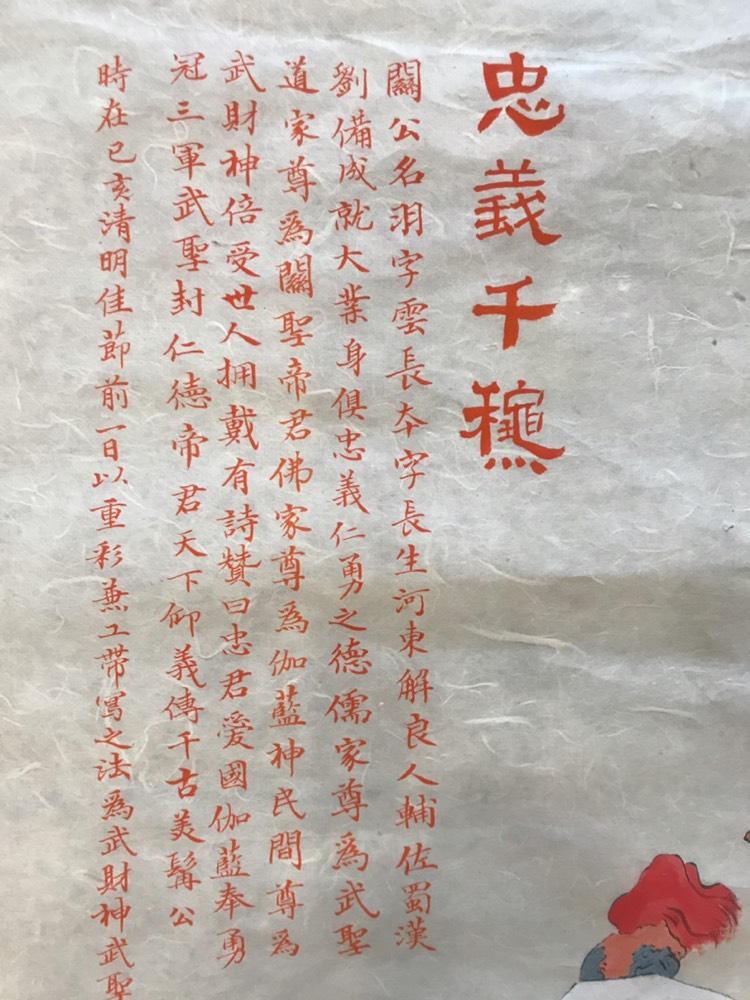 忠義千穐
關公名羽字雲長本字長生河東解良人輔佐蜀漢
劉備成就大業身俱忠義仁勇之德儒家尊為武聖
道家尊為關聖帝君佛家尊為伽藍神民間尊為
武財神倍受世人拥戴有詩贊曰忠君愛國伽藍奉勇
冠三軍武聖封仁德帝君天下仰義傳千古美髯公
時在己亥清明佳節前一日以重彩兼工帶寫之法為武財神武聖